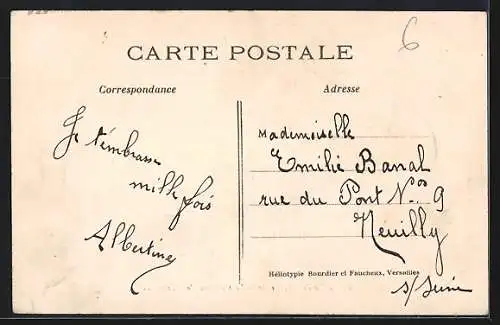 6
CARTE POSTALE
Correspondance
Je t'embrasse
mille fois
Albertine
Adresse
Mademoiselle
Emilie Banal
rue du Pont Nos 9
Neuilly
s/Seine
Héliotypie Bourdier et Faucheux, Versailles